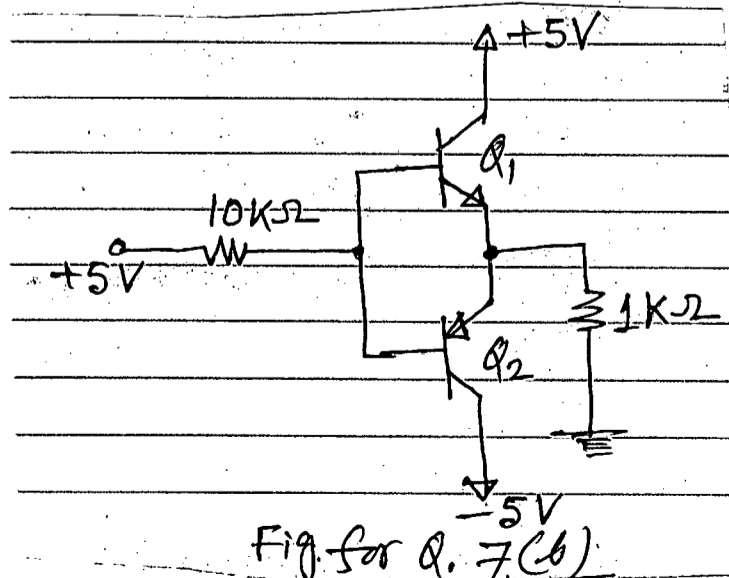 +5V
Q1
10KΩ
+5V
1KΩ
Q2
-5V
Fig. for Q. 7(b)